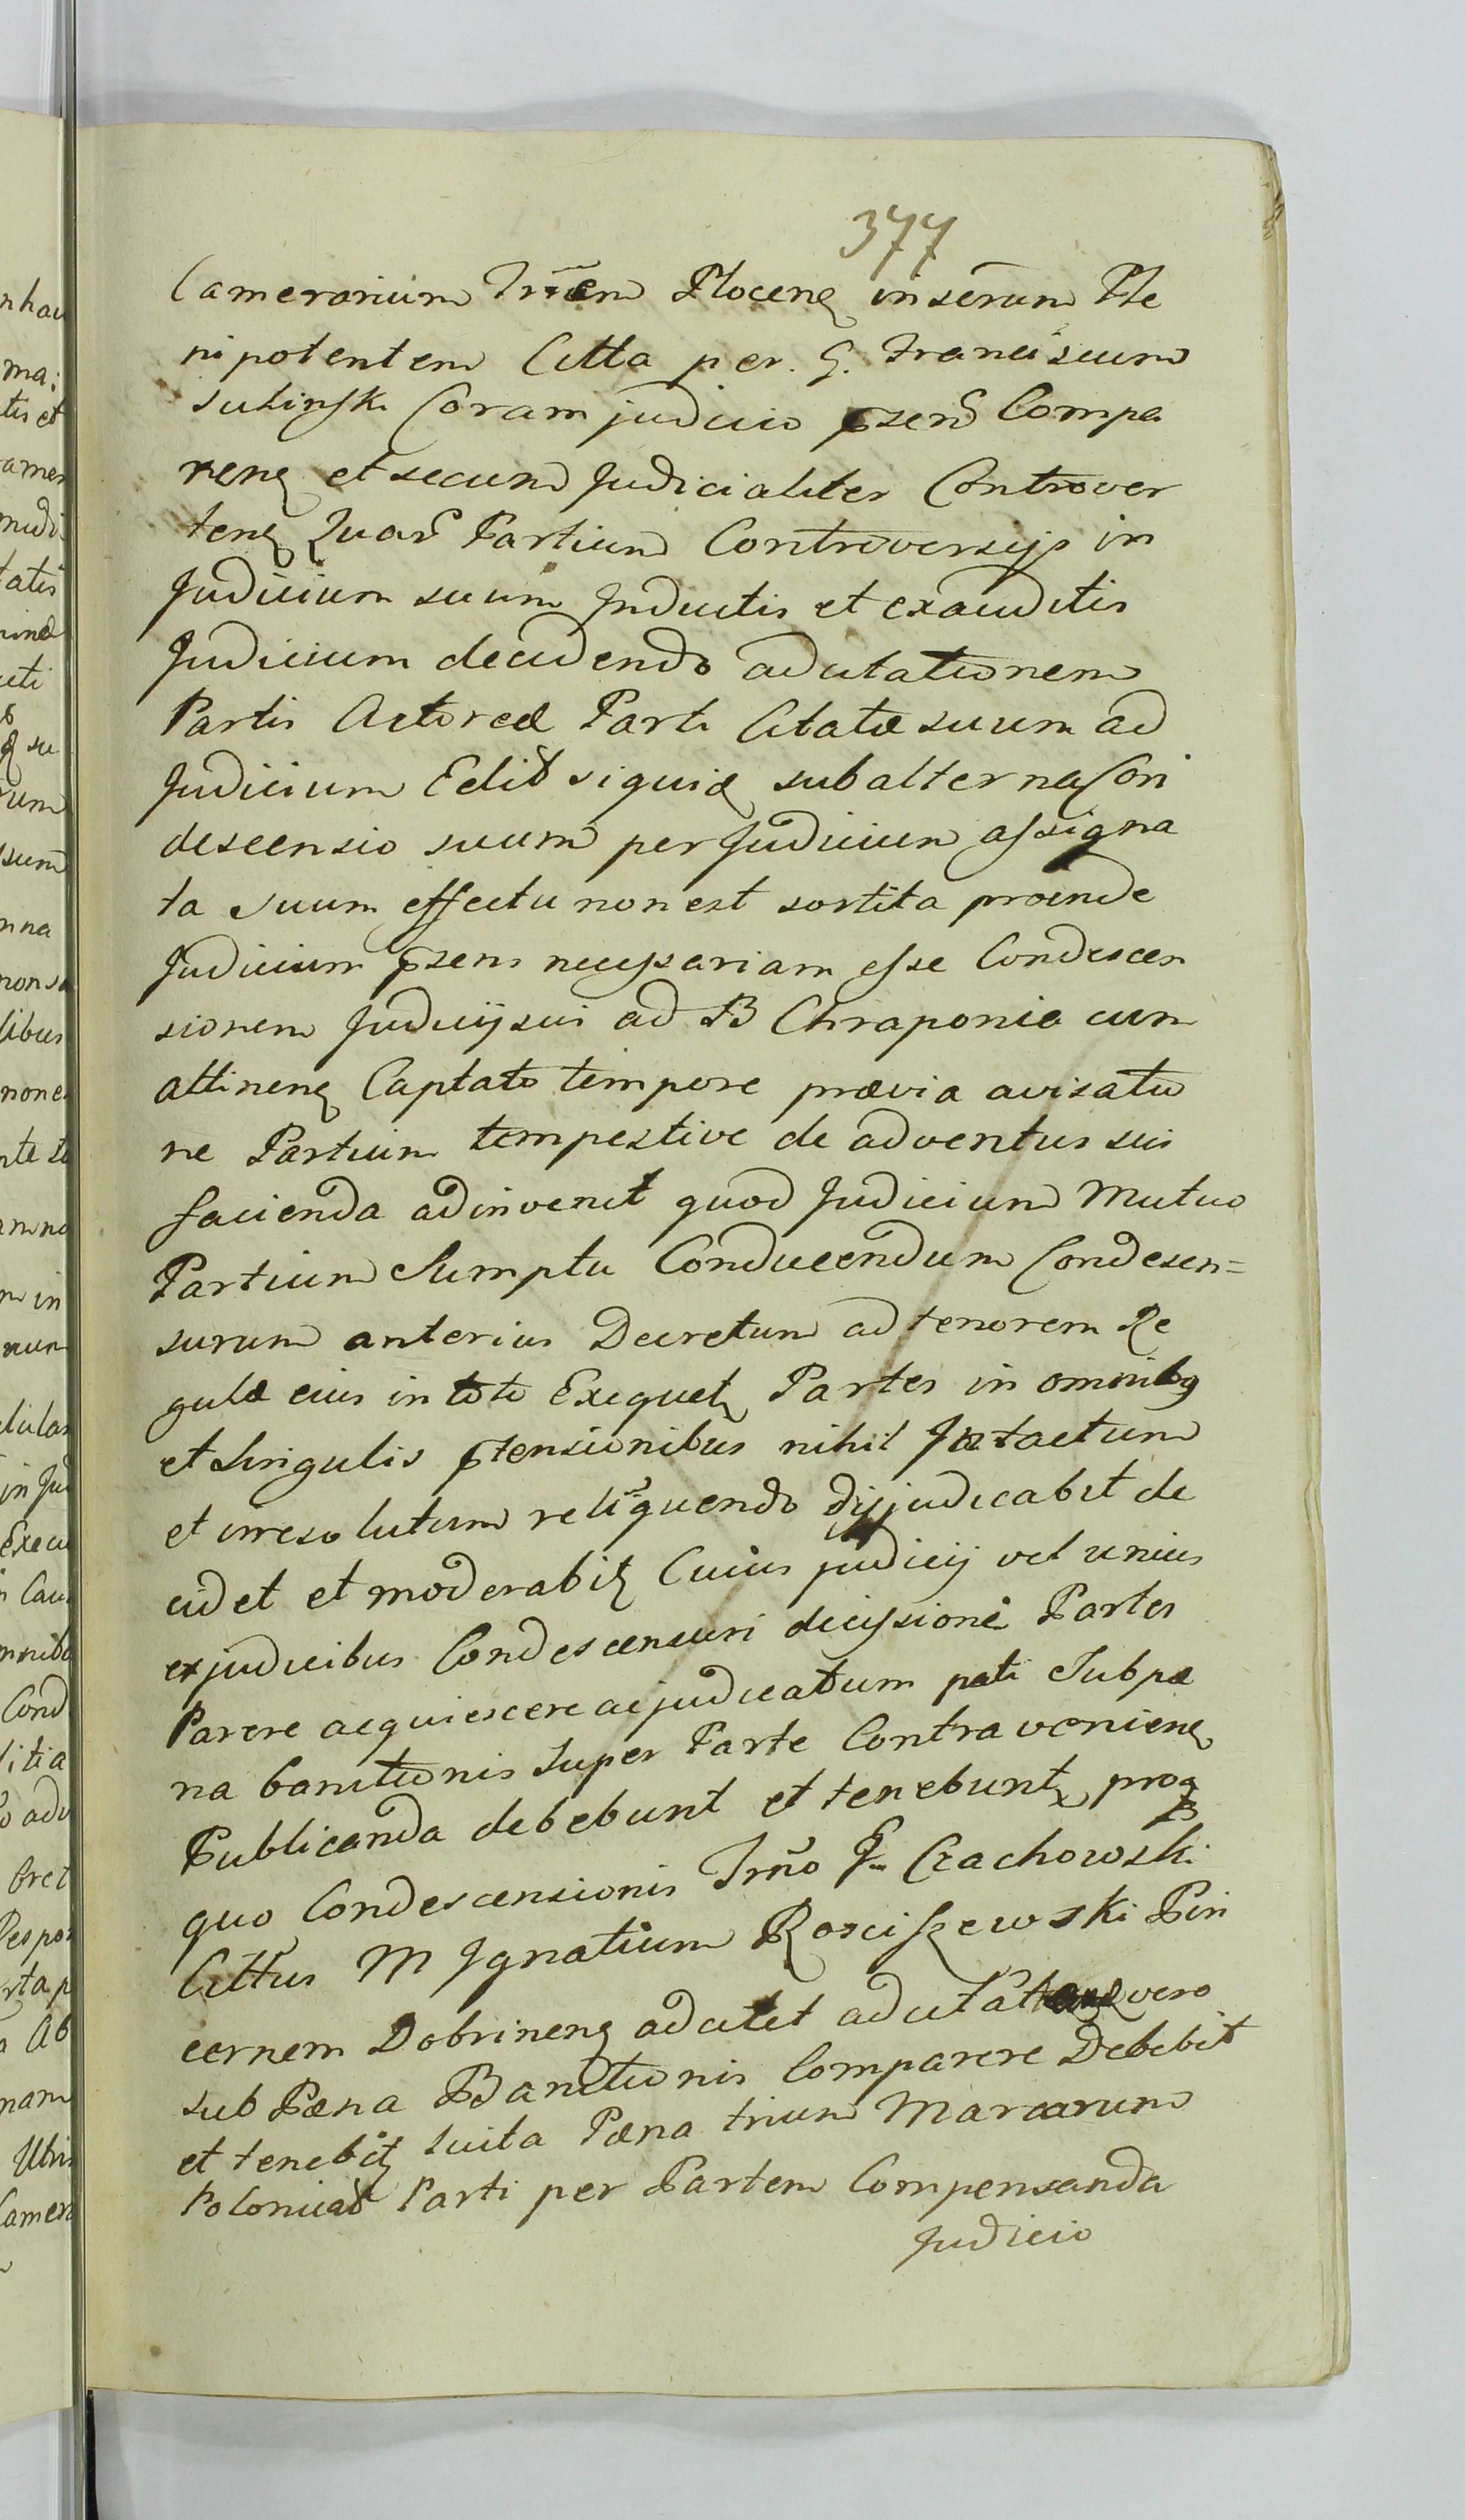 377
Camerarium Plocenq inserum Ple
nipotentem Citta per. G. Franciscum
Sulinski Coram judicio pzens Compa
renq et secum Judicialiter Controver
tenq Quar Partium Controversijs in
Judicium suum Inductis et exauditis
Judicium decidendo adcitationem
Partis Actoreæ Parti Citatæ suum ad
Judicium Edit siquiq subalterna Con
descensio suum per Judicium assigna
ta suum effectu non est sortita proinde
Judicium pzens necessariam esse Condescen
sionem Judicij sui ad B Chraponia cum
attinenq Captato tempore prævia avisatio
ne Partium tempestive de adventus sui
facienda adinvenit quod Judicium Mutuo
Partium Sumptu Conducendum Condescen=
surum anterius Decretum ad tenorem Re
gulæ eius in toto Exequetq Partes in omnibq
et Singulis ptensionibus nihil Intactum
et irresolutum reliquendo dijjudicabit de
cidet et moderabitq Cuius judicij vel unius
ex judicibus Condescensuri decissione Partes
Parere acquiescere ac judicatum pati Subpæ
na banitionis super Parte Contravenienq
Publicanda debebunt et tenebuntq proq
quo Condescensionis Trno Czachowski
Cittus M Ignatium Rosciszewski Pin
cernem Dobrinenq adcitet vero
sub Pæna Banitionis Comparere Debebit
et tenebitq luita Pæna trium Marcarum
Polonical Parti per Partem Compensanda
Judicio